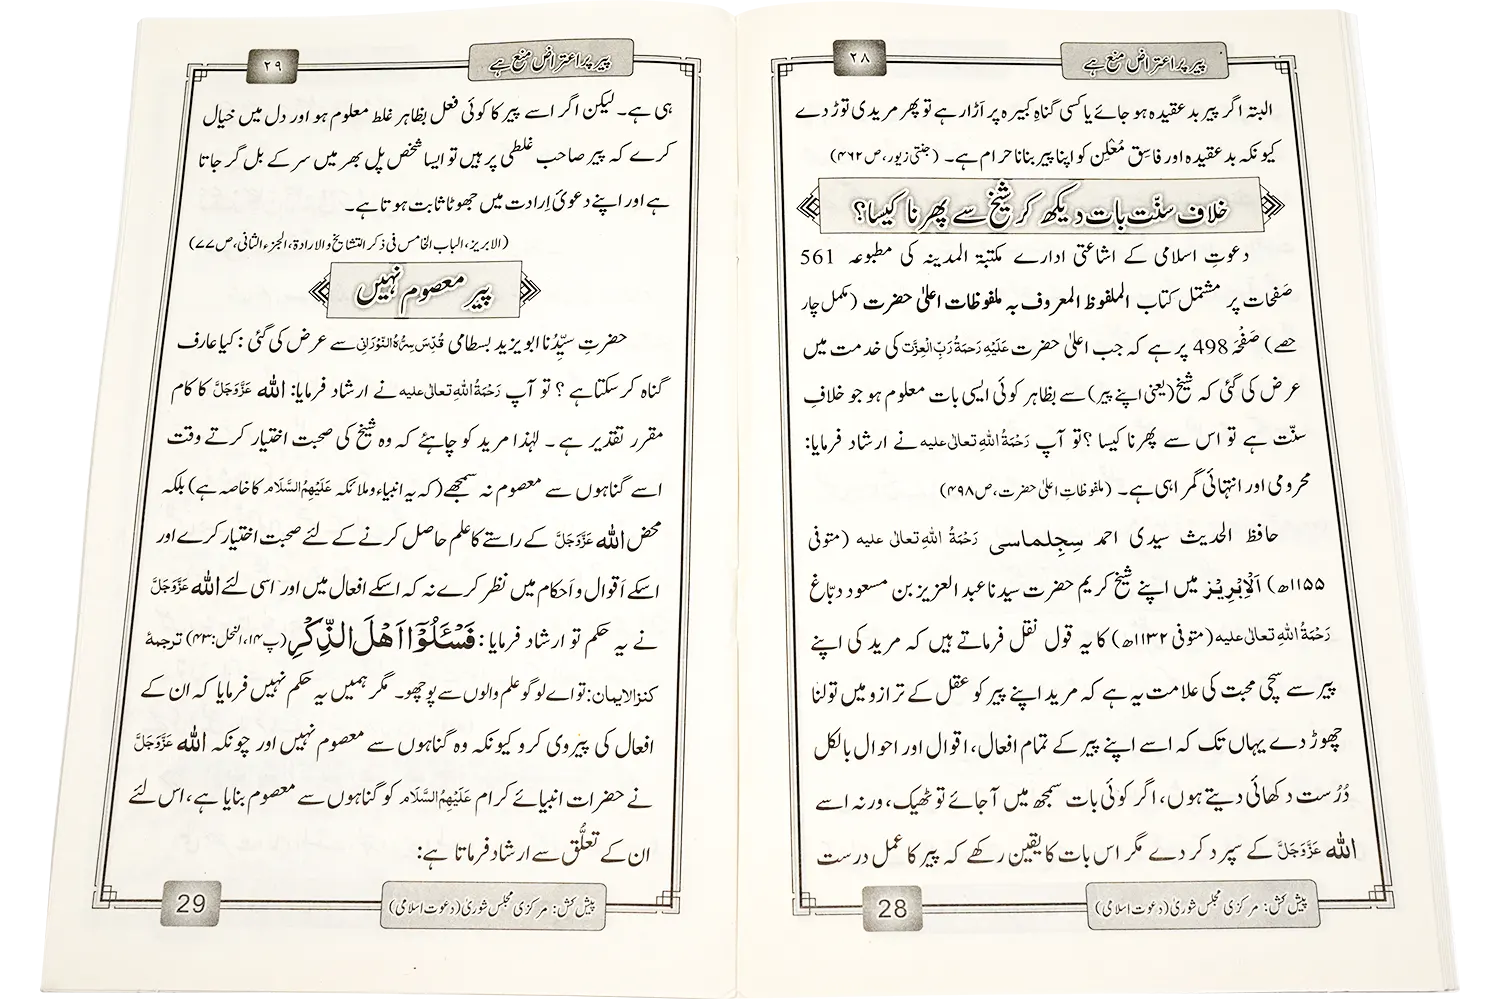 پیر پر اعتراض منع ہے
۲۸
البتہ اگر پیر بد عقیدہ ہو جائے یا کسی گناہِ کبیرہ پر اَڑا رہے تو پھر مریدی توڑ دے
کیونکہ بد عقیدہ اور فاسِق مُعْلِن کو اپنا پیر بنانا حرام ہے۔ (جنتی زیور، ص۴۶۲)
خلافِ سنّت بات دیکھ کر شیخ سے پھرنا کیسا؟
دعوتِ اسلامی کے اشاعتی ادارے مکتبۃ المدینہ کی مطبوعہ 561
صَفحات پر مشتمل کتاب الملفوظ المعروف بہ ملفوظات اعلیٰ حضرت (مکمل چار
حصے) صَفْحَہ 498 پر ہے کہ جب اعلیٰ حضرت عَلَیْہِ رَحمَۃُ رَبِّ الْعِزَّت کی خدمت میں
عرض کی گئی کہ شیخ (یعنی اپنے پیر) سے بظاہر کوئی ایسی بات معلوم ہو جو خلافِ
سنّت ہے تو اس سے پھرنا کیسا ؟ تو آپ رَحْمَۃُ اللہِ تعالٰی علیہ نے ارشاد فرمایا:
محرومی اور انتہائی گمراہی ہے۔ (ملفوظاتِ اعلیٰ حضرت، ص۴۹۸)
حافظ الحدیث سیدی احمد سِجِلماسی رَحْمَۃُ اللہِ تعالٰی علیہ (متوفی
۱۱۵۵ھ) اَلْاِبْرِیْز میں اپنے شیخ کریم حضرت سیدنا عبد العزیز بن مسعود دبّاغ
رَحْمَۃُ اللہِ تعالٰی علیہ (متوفی ۱۱۳۲ھ) کا یہ قول نقل فرماتے ہیں کہ مرید کی اپنے
پیر سے سچی محبت کی علامت یہ ہے کہ مرید اپنے پیر کو عقل کے ترازو میں تولنا
چھوڑ دے یہاں تک کہ اسے اپنے پیر کے تمام افعال، اقوال اور احوال بالکل
دُرُست دکھائی دیتے ہوں، اگر کوئی بات سمجھ میں آجائے تو ٹھیک، ورنہ اسے
اللہ عَزَّوَجَلَّ کے سپرد کر دے مگر اس بات کا یقین رکھے کہ پیر کا عمل درست
پیش کش: مرکزی مجلس شوریٰ (دعوت اسلامی)
28
پیر پر اعتراض منع ہے
۲۹
ہی ہے۔ لیکن اگر اسے پیر کا کوئی فعل بظاہر غلط معلوم ہو اور دل میں خیال
کرے کہ پیر صاحب غلطی پر ہیں تو ایسا شخص پل بھر میں سر کے بل گر جاتا
ہے اور اپنے دعویٔ اِرادت میں جھوٹا ثابت ہوتا ہے۔
(الابریز، الباب الخامس فی ذکر التشایخ والارادۃ، الجزء الثانی، ص۷۷)
پیر معصوم نہیں
حضرتِ سیّدُنا ابو یزید بسطامی قُدِّسَ سِرُّہُ النُّوْرَانِی سے عرض کی گئی : کیا عارف
گناہ کر سکتا ہے ؟ تو آپ رَحْمَۃُ اللہِ تعالٰی علیہ نے ارشاد فرمایا: اللہ عَزَّوَجَلَّ کا کام
مقرر تقدیر ہے ۔ لہٰذا مرید کو چاہئے کہ وہ شیخ کی صحبت اختیار کرتے وقت
اسے گناہوں سے معصوم نہ سمجھے (کہ یہ انبیاء و ملائکہ عَلَیْہِمُ السَّلَام کا خاصہ ہے) بلکہ
محض اللہ عَزَّوَجَلَّ کے راستے کا علم حاصل کرنے کے لئے صحبت اختیار کرے اور
اسکے اَقوال و اَحکام میں نظر کرے نہ کہ اسکے افعال میں اور اسی لئے اللہ عَزَّوَجَلَّ
نے یہ حکم تو ارشاد فرمایا : فَسْـَٔلُوْٓا اَهْلَ الذِّكْرِ (پ۱۴، النحل:۴۳) ترجمۂ
کنز الایمان: تو اے لوگو علم والوں سے پوچھو۔ مگر ہمیں یہ حکم نہیں فرمایا کہ ان کے
افعال کی پیروی کرو کیونکہ وہ گناہوں سے معصوم نہیں اور چونکہ اللہ عَزَّوَجَلَّ
نے حضرات انبیائے کرام عَلَیْہِمُ السَّلَام کو گناہوں سے معصوم بنایا ہے، اس لئے
ان کے تعلُّق سے ارشاد فرماتا ہے:
پیش کش: مرکزی مجلس شوریٰ (دعوت اسلامی)
29